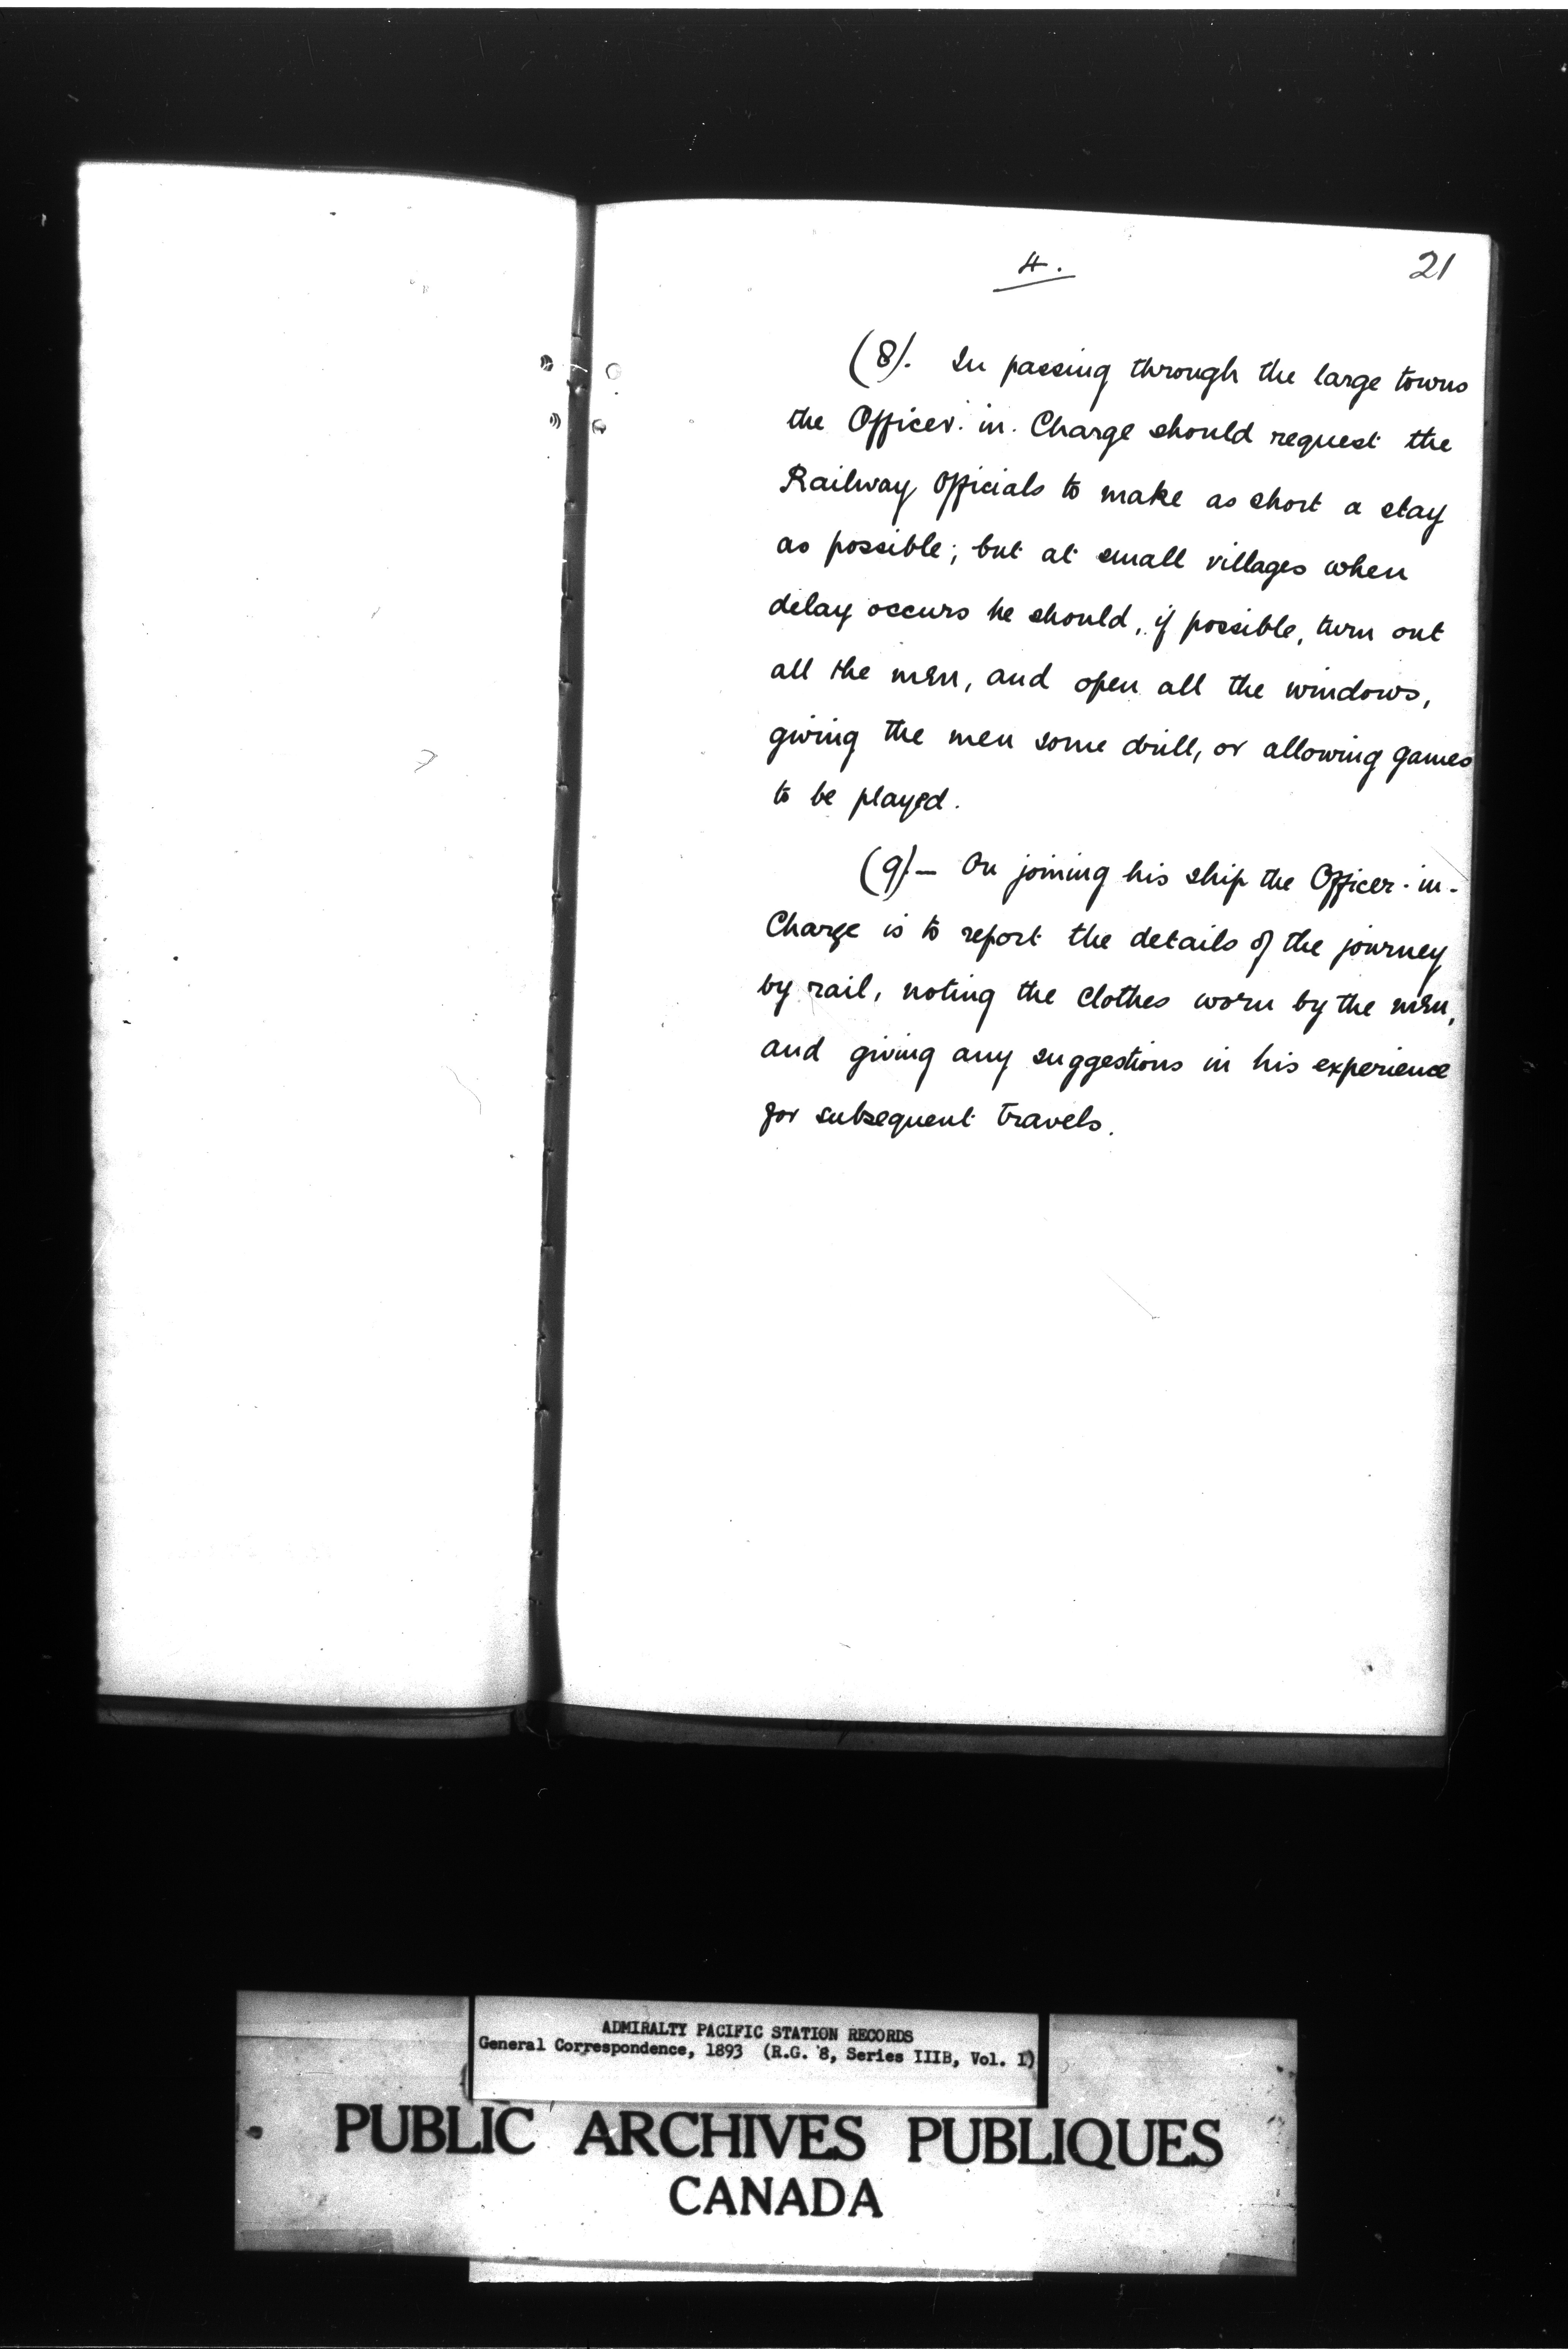 4.
21
(8). In passing through the large towns
the Officer-in-Charge should request the
Railway Officials to make as short a stay
as possible; but at small villages when
delay occurs he should, if possible, turn out
all the men, and open all the windows,
giving the men some drill, or allowing games
to be played.
(9)— On joining his ship the Officer-in-
Charge is to report the details of the journey
by rail, noting the clothes worn by the men,
and giving any suggestions in his experience
for subsequent travels.
ADMIRALTY PACIFIC STATION RECORDS
General Correspondence, 1893 (R.G. 8, Series IIIB, Vol. 1)
PUBLIC ARCHIVES PUBLIQUES
CANADA